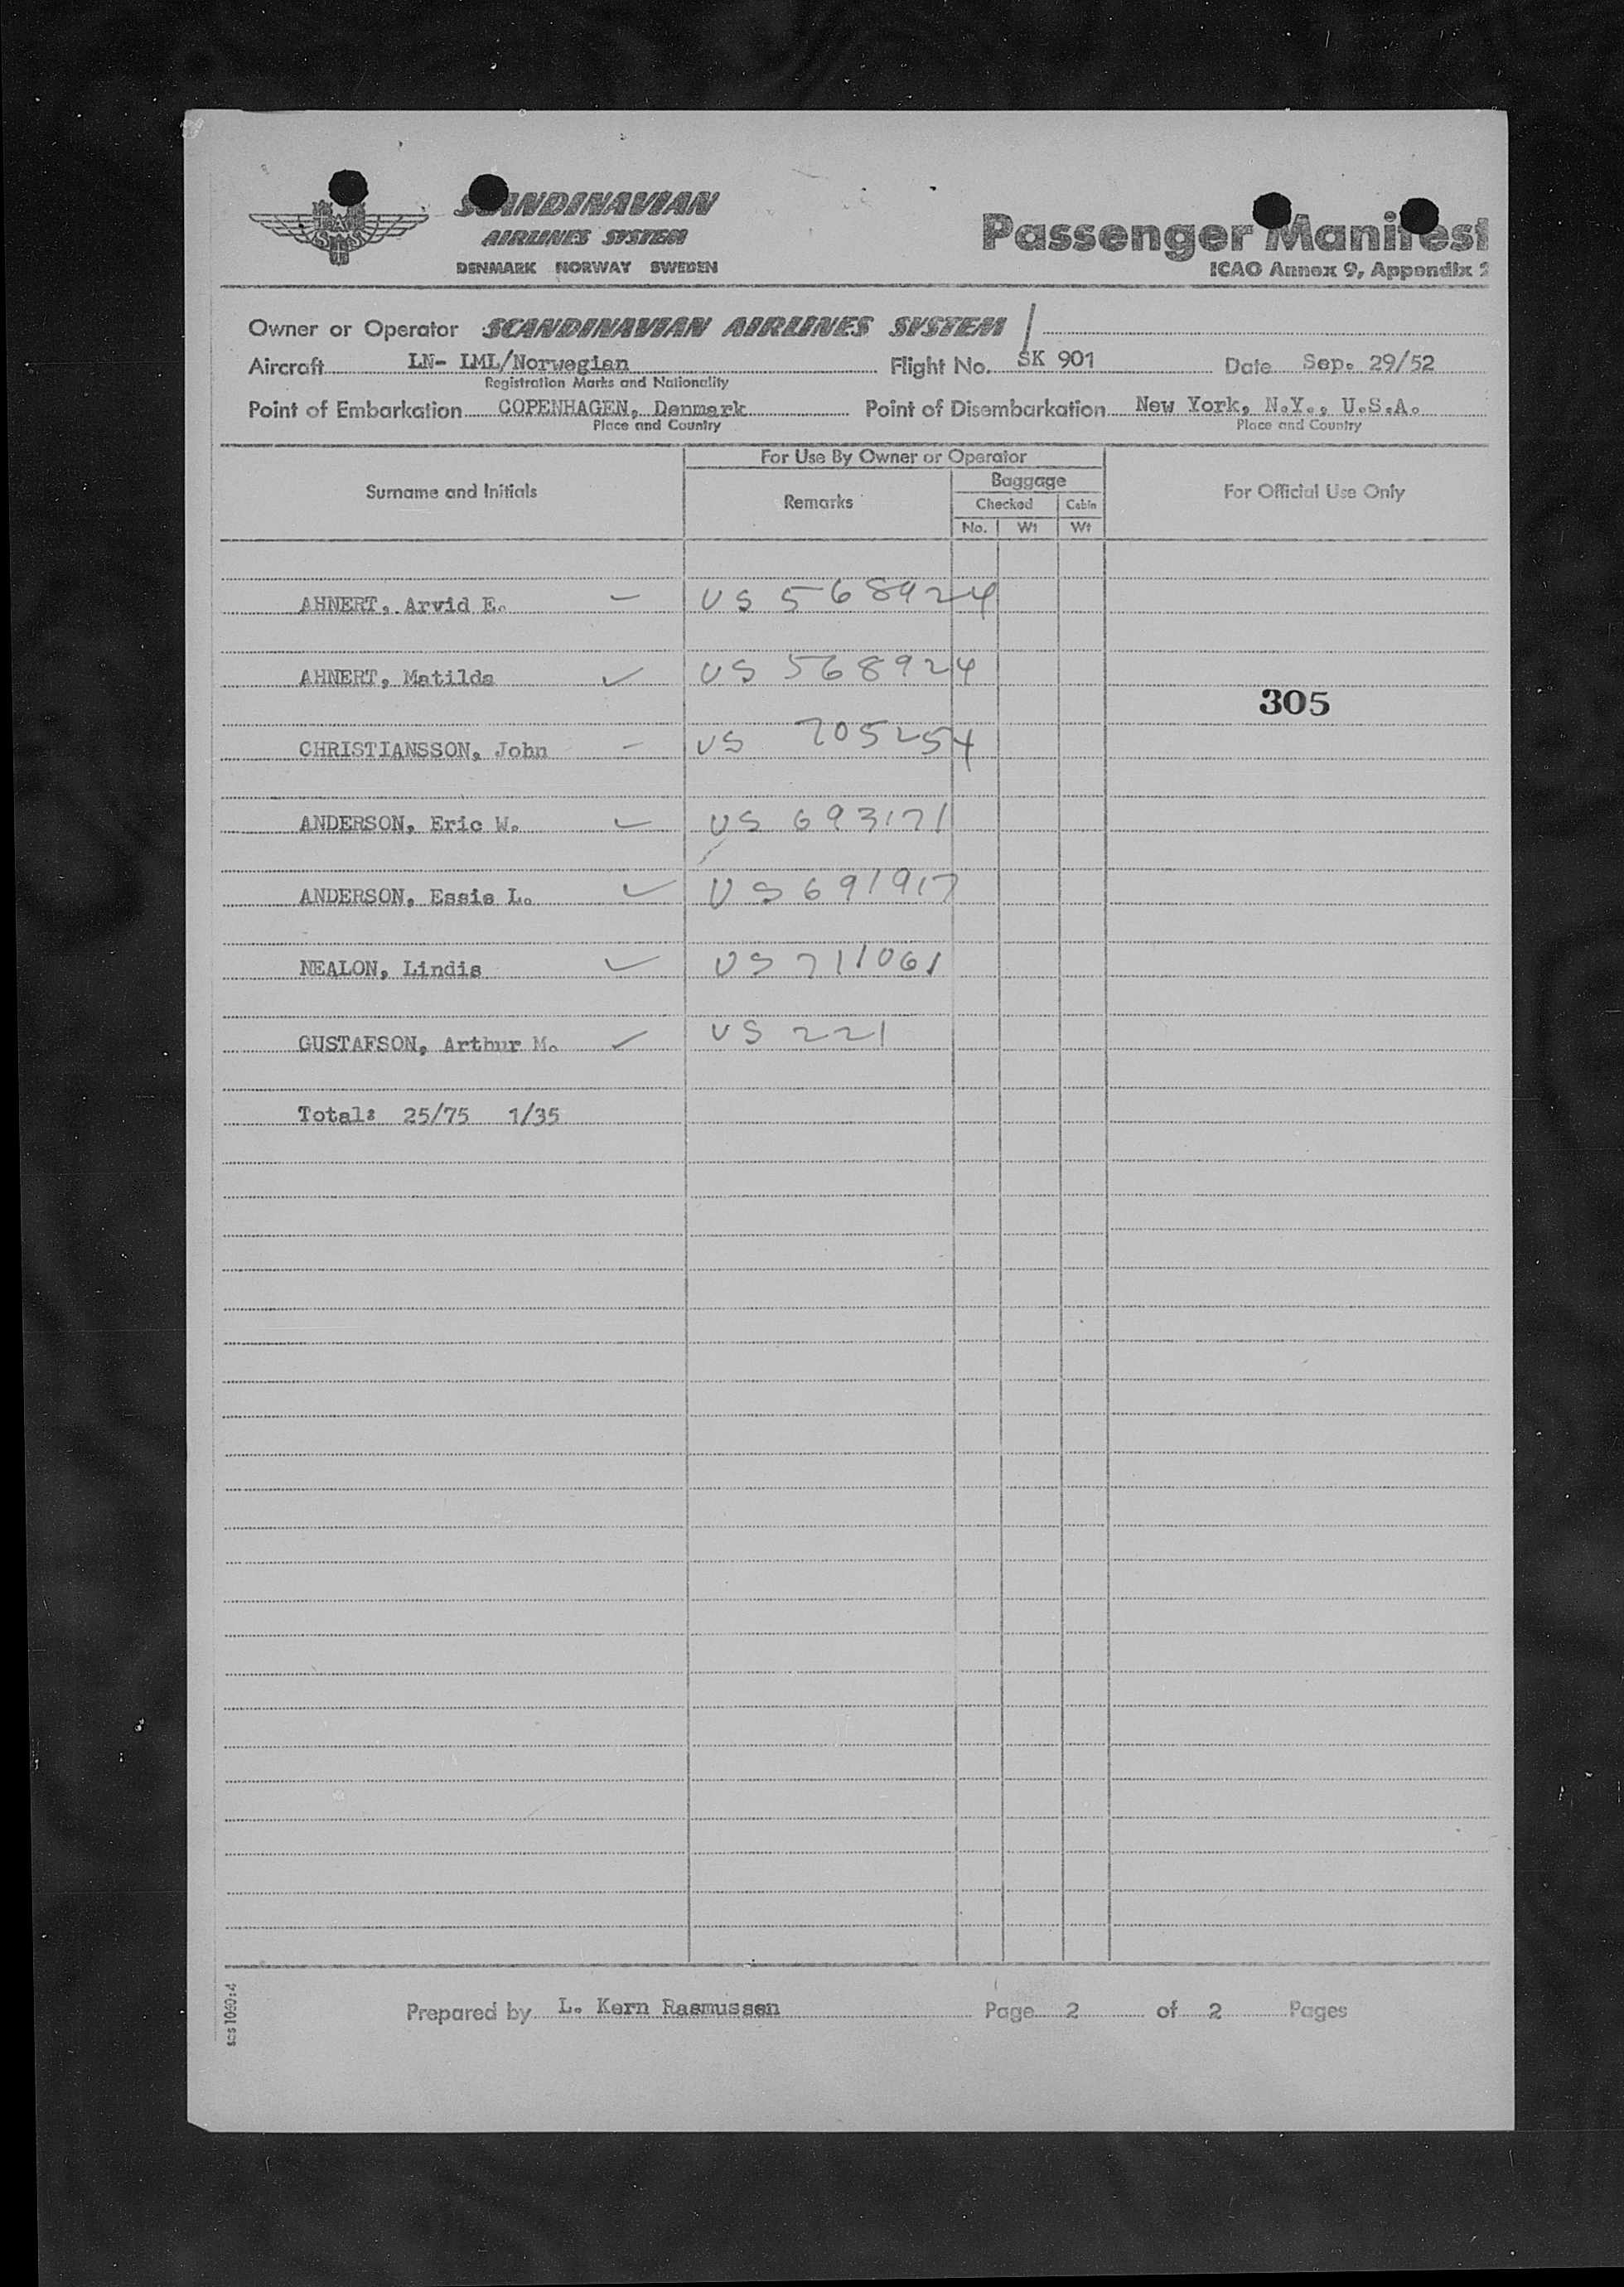 SCANDINAVIAN
AIRLINES SYSTEM
DENMARK NORWAY SWEDEN
SAS
Passenger Manifest
ICAO Annex 9, Appendix 2
Owner or Operator SCANDINAVIAN AIRLINES SYSTEM /
Aircraft LN- LML/Norwegian Flight No. SK 901 Date Sep. 29/52
Registration Marks and Nationality
Point of Embarkation COPENHAGEN, Denmark Point of Disembarkation New York, N.Y., U.S.A.
Place and Country Place and Country
For Use By Owner or Operator
Surname and Initials Remarks Baggage For Official Use Only
Checked Cabin
No. Wt Wt
AHNERT, Arvid E. – US 568924
AHNERT, Matilda ✓ US 568924
305
CHRISTIANSSON, John – US 705254
ANDERSON, Eric W. ✓ US 693171
ANDERSON, Essie L. ✓ US 691917
NEALON, Lindis ✓ US 711061
GUSTAFSON, Arthur M. ✓ US 221
Total: 25/75 1/35
Prepared by L. Kern Rasmussen Page 2 of 2 Pages
sas 1060:4